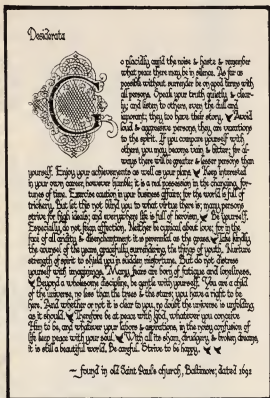 Desiderata
G
o placidly amid the noise & haste & remember
what peace there may be in silence. As far as
possible without surrender be on good terms with
all persons. Speak your truth quietly & clear-
ly; and listen to others, even the dull and
ignorant; they too have their story. Avoid
loud & aggressive persons, they are vexations
to the spirit. If you compare yourself with
others, you may become vain & bitter; for al-
ways there will be greater & lesser persons than
yourself. Enjoy your achievements as well as your plans. Keep interested
in your own career, however humble; it is a real possession in the changing for-
tunes of time. Exercise caution in your business affairs; for the world is full of
trickery. But let this not blind you to what virtue there is; many persons
strive for high ideals; and everywhere life is full of heroism. Be yourself.
Especially, do not feign affection. Neither be cynical about love; for in the
face of all aridity & disenchantment it is perennial as the grass. Take kindly
the counsel of the years, gracefully surrendering the things of youth. Nurture
strength of spirit to shield you in sudden misfortune. But do not distress
yourself with imaginings. Many fears are born of fatigue and loneliness.
Beyond a wholesome discipline, be gentle with yourself. You are a child
of the universe, no less than the trees & the stars; you have a right to be
here. And whether or not it is clear to you, no doubt the universe is unfolding
as it should. Therefore be at peace with God, whatever you conceive
Him to be, and whatever your labors & aspirations, in the noisy confusion of
life keep peace with your soul. With all its sham, drudgery & broken dreams,
it is still a beautiful world. Be careful. Strive to be happy.
~ found in old Saint Paul's church, Baltimore; dated 1692